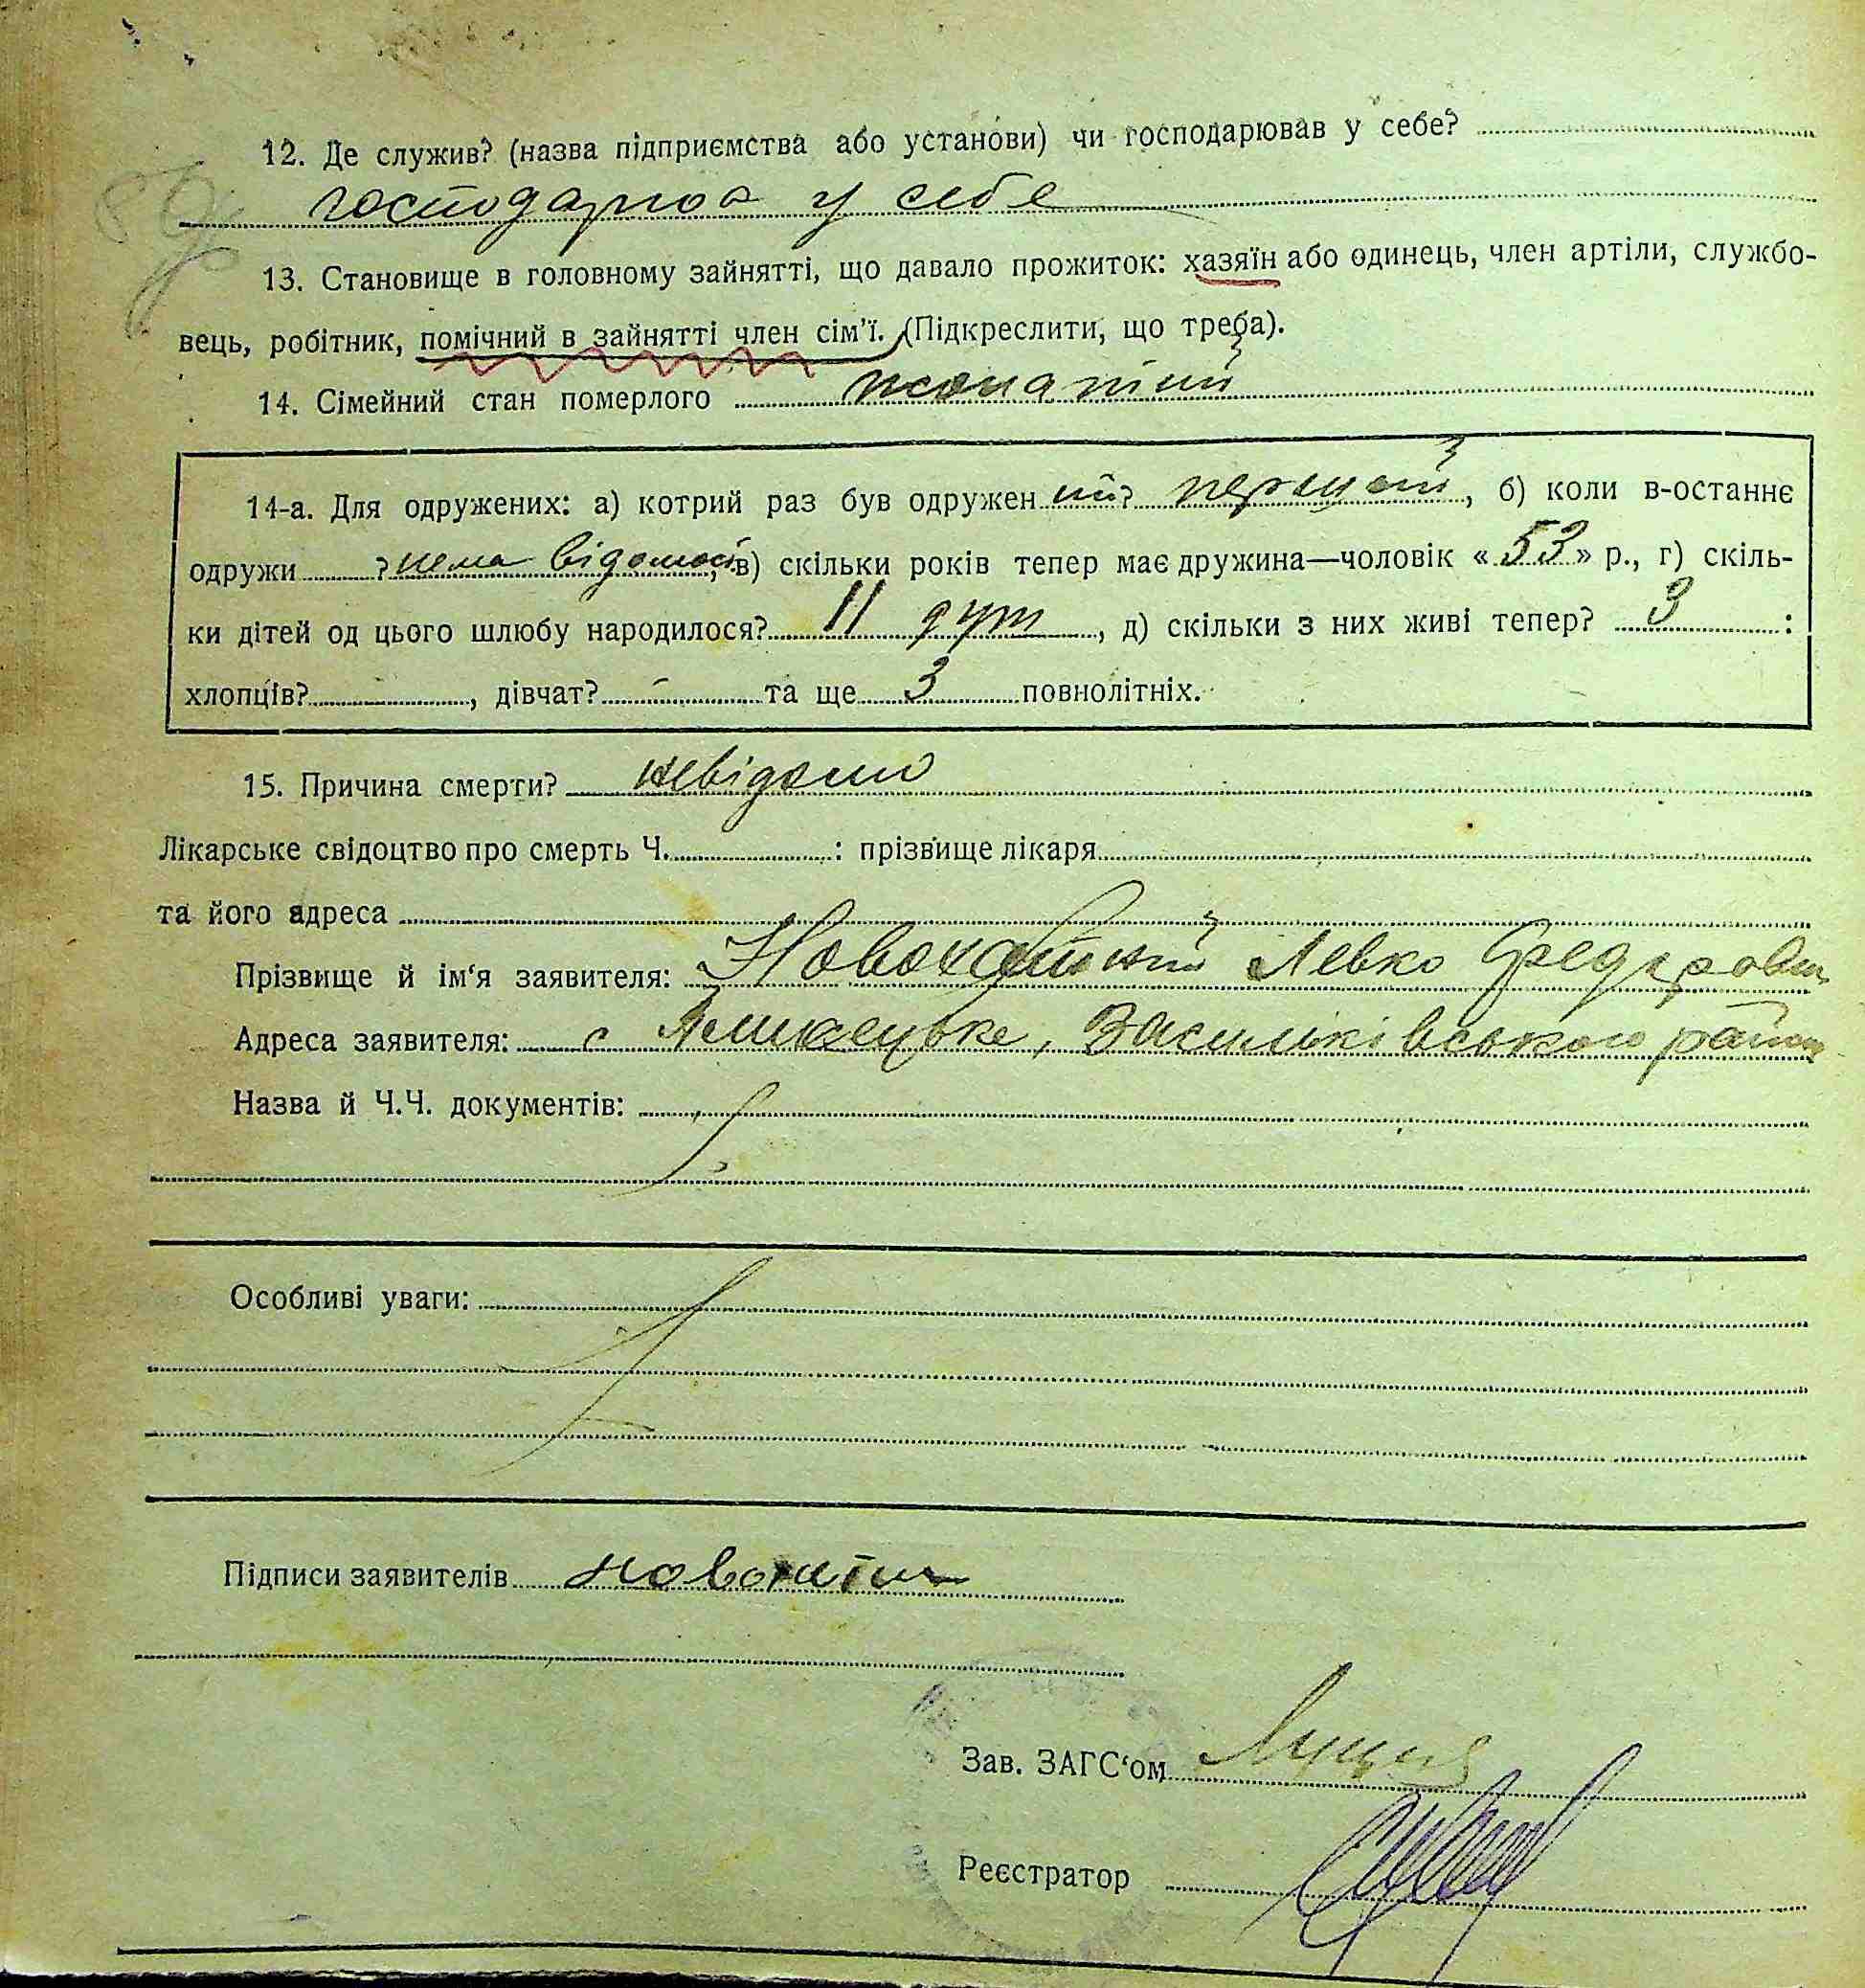 12. Де служив? (назва підприємства або установи) чи господарював у себе?
господарюв у себе
13. Становище в головному зайнятті, що давало прожиток: хазяїн або одинець, член артіли, службо-
вець, робітник, помічний в зайнятті член сім'ї. (Підкреслити, що треба).
14. Сімейний стан померлого жонатий
14-а. Для одружених: а) котрий раз був одружен ий? перший, б) коли в-останнє
одружи ? нема відомостів, в) скільки років тепер має дружина—чоловік «53» р., г) скіль-
ки дітей од цього шлюбу народилося? 11 душ, д) скільки з них живі тепер? 3 :
хлопців? , дівчат? - та ще 3 повнолітніх.
15. Причина смерти? невідомо
Лікарське свідоцтво про смерть Ч. : прізвище лікаря
та його адреса
Прізвище й ім'я заявителя: Левко Федорович
Адреса заявителя: с Василіківського району
Назва й Ч.Ч. документів:
Особливі уваги:
Підписи заявителів
Зав. ЗАГС'ом
Реєстратор